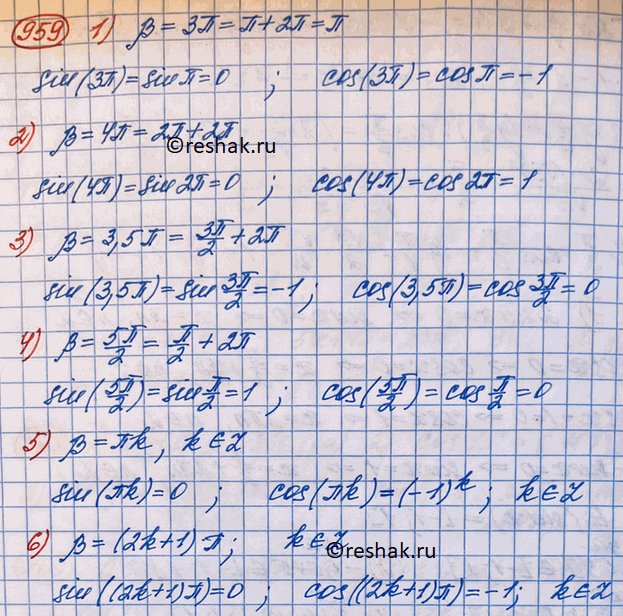 959 1) β = 3π = π + 2π = π
sin(3π) = sin π = 0 ; cos(3π) = cos π = -1
2) β = 4π = 2π + 2π
©reshak.ru
sin(4π) = sin 2π = 0 ; cos(4π) = cos 2π = 1
3) β = 3,5π = 3π/2 + 2π
sin(3,5π) = sin 3π/2 = -1 ; cos(3,5π) = cos 3π/2 = 0
4) β = 5π/2 = π/2 + 2π
sin(5π/2) = sin π/2 = 1 ; cos(5π/2) = cos π/2 = 0
5) β = πk, k ∈ Z
sin(πk) = 0 ; cos(πk) = (-1)^k ; k ∈ Z
6) β = (2k+1)π ; k ∈ Z
©reshak.ru
sin((2k+1)π) = 0 ; cos((2k+1)π) = -1 ; k ∈ Z